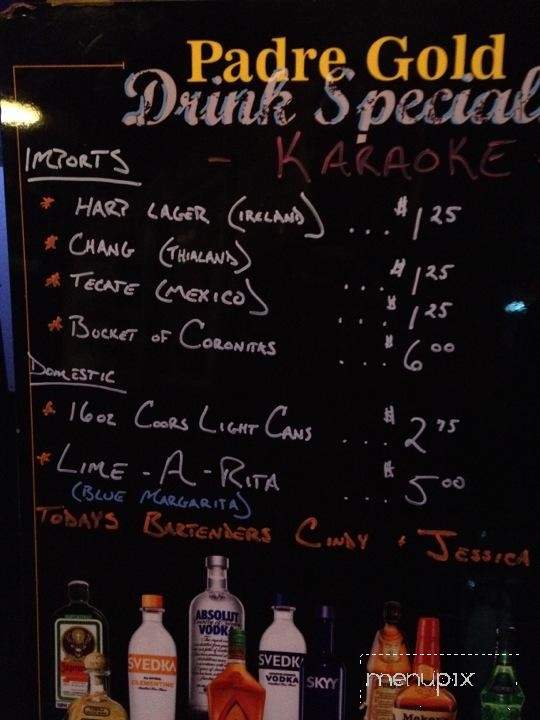 Padre Gold
Drink Special
- KARAOKE
IMPORTS
* HARP LAGER (IRELAND) ... $1.25
* CHANG (THIALAND) ... $1.25
* TECATE (MEXICO) ... $1.25
* BUCKET OF CORONITAS .... $6.00
DOMESTIC
* 16oz COORS LIGHT CANS .... $2.75
* LIME-A-RITA .... $5.00
(BLUE MARGARITA)
TODAYS BARTENDERS CINDY + JESSICA
ABSOLUT
VODKA
SVEDKA
CLEMENTINE
SVEDK
VODKA
SKYY
menupix